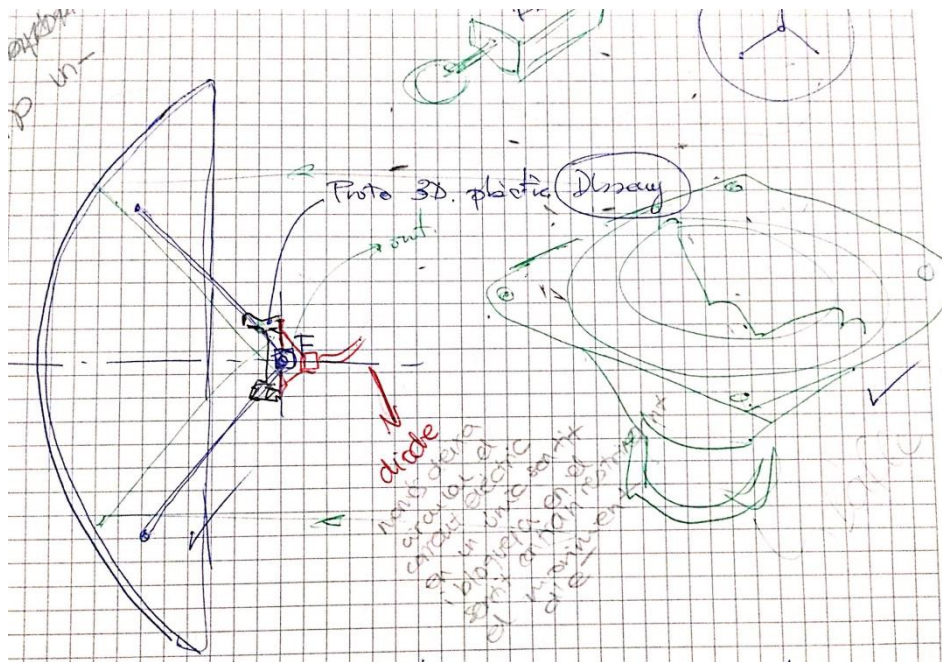 Proto 3D. plàstic Disseny
out.
F
diode
només deixa
circular el
circuit elèctric
en un únic sentit
i bloqueja en el
sentit contrari restringint
el moviment
d'e-